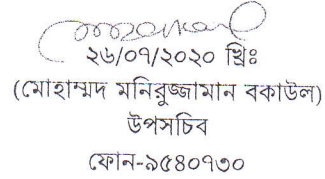 ২৬/০৭/২০২০ খ্রিঃ
(মোহাম্মদ মনিরুজ্জামান বকাউল)
উপসচিব
ফোন-৯৫৪০৭৩০